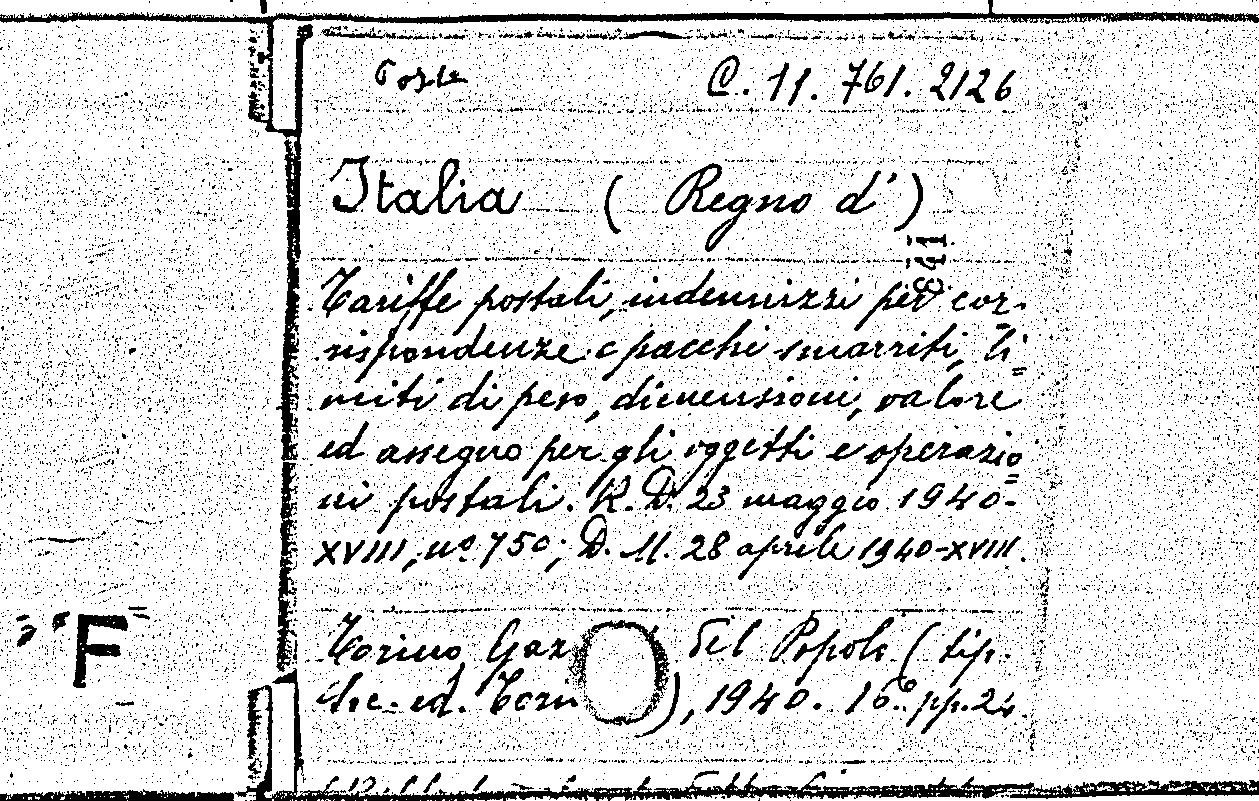 Poste C. 11. 761. 2126
Italia ( Regno d' )
841
Tariffe postali, indennizzi per cor-
rispondenze e pacchi smarriti, li=
miti di peso, dimensioni, valore
ed assegno per gli oggetti e operazio=
ni postali. R. D. 23 maggio 1940-
XVIII, nº 750; D. M. 28 aprile 1940-XVIII.
Torino, Gaz del Popolo ( tip.
Soc. ed. Torin ), 1940. 16º pp. 24
F